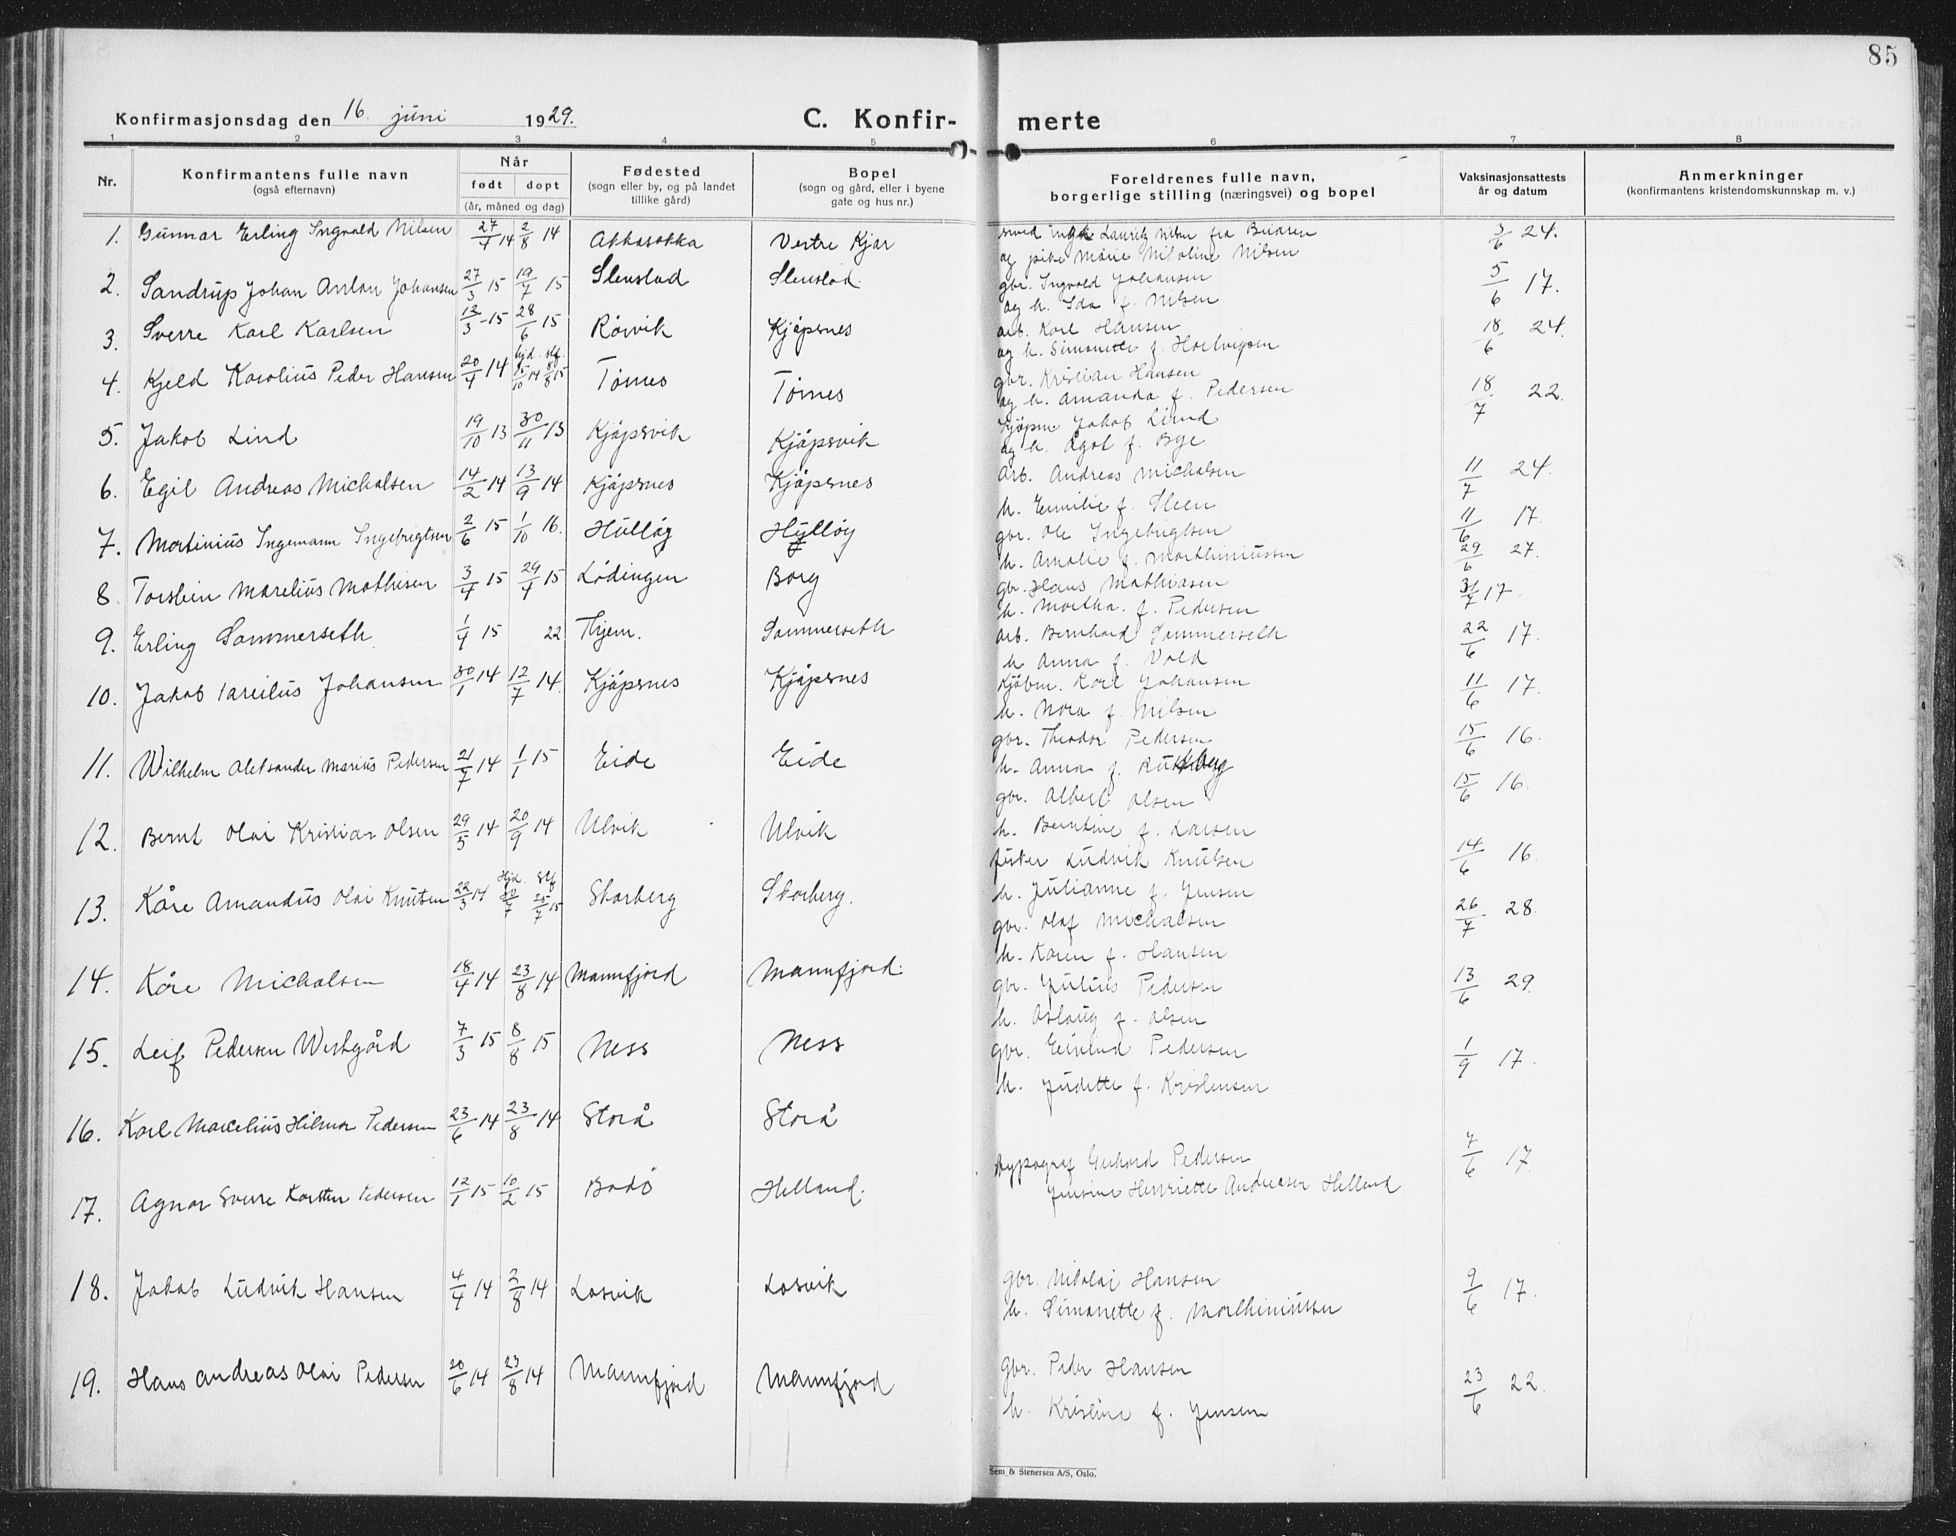 85
Konfirmasjonsdag den 16. juni 1929.
C. Konfir- merte
1 2 3 4 5 6 7 8
Nr.
Konfirmantens fulle navn
(også efternavn)
Når
født døpt
(år, måned og dag)
Fødested
(sogn eller by, og på landet
tillike gård)
Bopel
(sogn og gård, eller i byene
gate og hus nr.)
Foreldrenes fulle navn,
borgerlige stilling (næringsvei) og bopel
Vaksinasjonsattests
år og datum
Anmerkninger
(konfirmantens kristendomskunnskap m. v.)
1. Gunnar Erling Ingvald Nilsen 2/8 14 Vestre Kjær Lauritz Nilsen fra Beiaren 3/6 24.
og pike Marie Nikoline Nilsen
2. Sandrup Johan Anton Johansen 27/3 15 19/7 15 Stenstad Stenstad. gbr. Ingvald Johansen 5/6 17.
og h. Ida f. Nilsen
3. Sverre Karl Karlsen 13/3 15 28/6 15 Rørvik Kjøpsnes arb. Karl Hansen 18/6 24.
og h. Simonette f.
4. Kjeld Karolius Peder Hansen 20/4 14 hjd. 15/10 14 stf. 8/8 15 Tørnes Tørnes gbr. Kristian Hansen 18/7 22.
og h. Amanda f. Pedersen
5. Jakob Lind 19/10 13 30/11 13 Kjøpsvik Kjøpsvik Kjøpm Jakob Lind
og h. Ågot f. Bye
6. Egil Andreas Michalsen 14/2 14 13/9 14 Kjøpsnes Kjøpsnes Arb. Andreas Michalsen 11/7 24.
h. Emilie f. Steen
7. Martinius Ingemann Ingebrigtsen 2/6 15 1/10 16. Hulløy Hulløy gbr. Ole Ingebrigtsen 11/6 17.
h. Amalie f. Marthiniussen
8. Torstein Marelius Mathisen 3/4 15 29/4 15 Lødingen Borg gbr. Hans Mathiasen 29/6 27.
h. Martha. f. Pedersen
9. Erling Sommerseth 1/4 15 22 Hjem. Sommerseth arb. Bernhard Sommerseth 31/7 17.
h Anna f. Vold
10. Jakob Johansen 30/1 14 12/7 14. Kjøpsnes Kjøpsnes Kjøbm. Karl Johansen 22/6 17.
h. Nora f. Nilsen
11. Wilhelm Aleksander Marius Pedersen 21/7 14 1/1 15 Eide Eide gbr. Theodor Pedersen 11/6 17.
h. Anna f.
12. Bernt Olai Kristian Olsen 29/5 14 20/9 14 Ulvik Ulvik gbr. Albert Olsen 15/6 16.
h. Berntine f. Larsen
13. Kåre Amandus Olai Knutsen 22/3 14 Hjd. Stf 25/7 15 Skarberg Skarberg. fisker Ludvik Knutsen 15/6 16.
h. Julianne f. Jensen
14. Kåre Michalsen 18/4 14 23/8 14 Mannfjord Mannfjord. gbr. Olaf Michalsen 14/6 16.
h. Karen f. Hansen
15. Leif Pedersen Westgård 7/3 15 8/8 15 Ness Ness gbr. Julius Pedersen 26/7 28.
h. Aslaug f. Olsen
16. Karl Marcelius Hilmar Pedersen 23/6 14 23/8 14 Storå Storå gbr. Eivind Pedersen 13/6 29.
h. Judette f. Kristensen
1/9 17.
17. Agnar Sverre Karsten Pedersen 12/1 15 10/2 15 Bodø Helland. Typograf Gerhard Pedersen 7/6 17.
Jensine Henriette Andreasen Helland
18. Jakob Ludvik Hansen 4/4 14 2/8 14 Losvik Losvik gbr. Nikolai Hansen 9/6 17.
h. Simonette f. Marthiniussen
19. Hans Andreas Olai Pedersen 20/6 14 23/8 14 Mannfjord Mannfjord gbr. Peder Hansen 23/6 22.
h. Kristine f. Jensen
Sem & Stenersen A/S, Oslo.